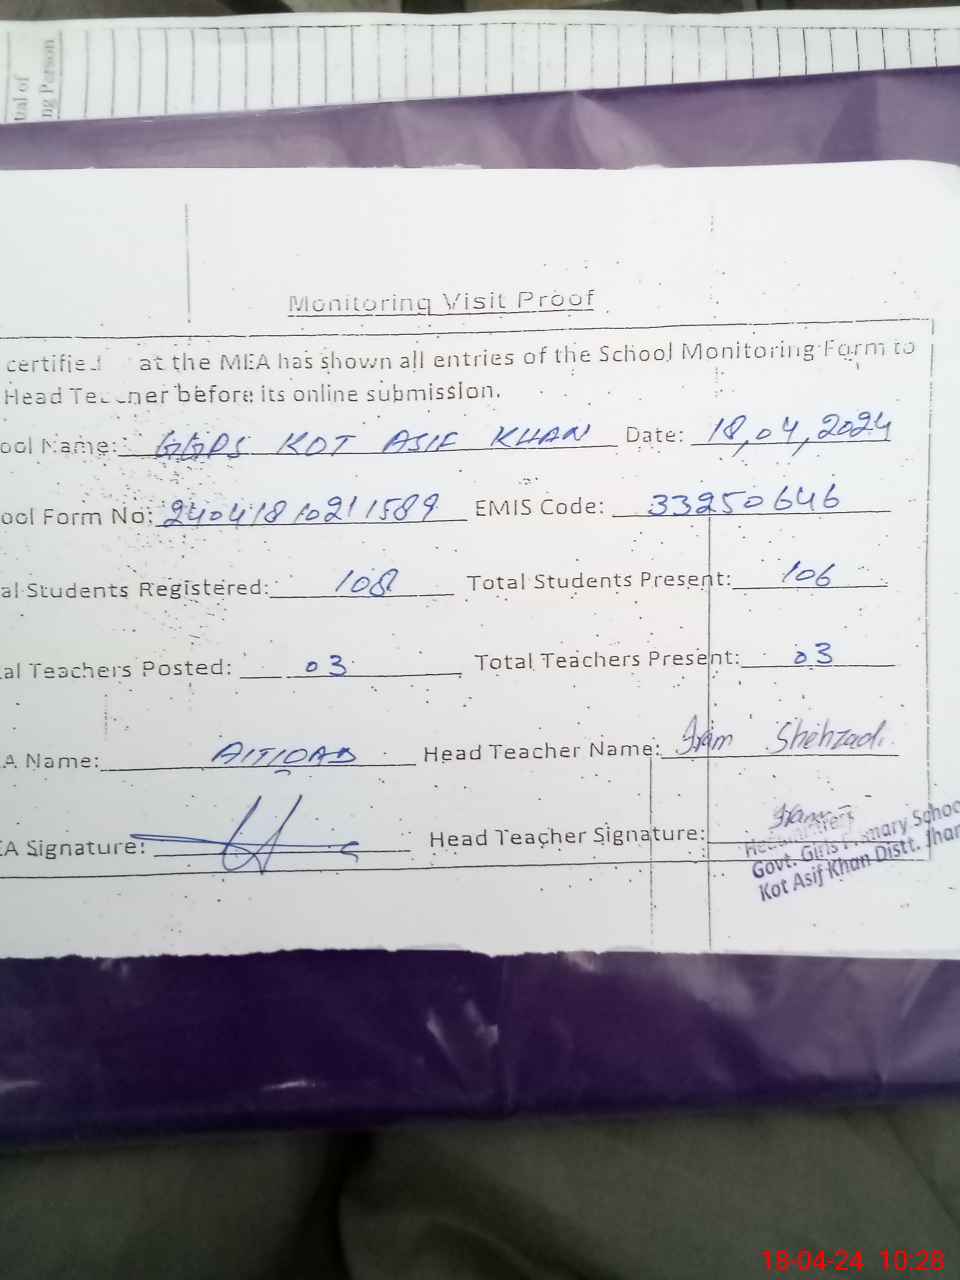 ng Person
Monitoring Visit Proof
at the MEA has shown all entries of the School Monitoring Form to
Head Teacher before its online submission.
ool Name: GGPS KOT ASIF KHAN Date: 18,04,2024
ool Form No: 24041810211589 EMIS Code: 33250646
al Students Registered: 108 Total Students Present: 106
al Teachers Posted: 03 Total Teachers Present: 03
A Name: Head Teacher Name: Iram Shehzadi
EA Signature: Head Teacher Signature: Iram
Govt. Girls Primary School
Kot Asif Khan Distt. Jhan
18-04-24 10:28